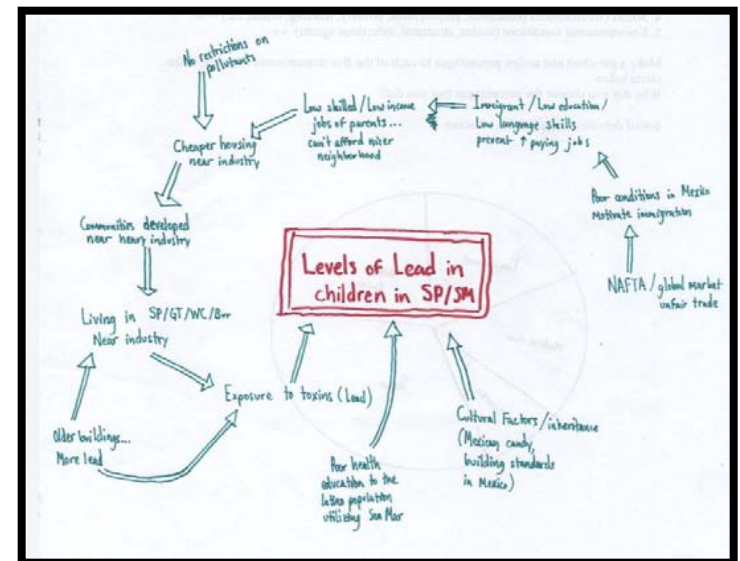 No restrictions on
pollutants
Low skilled / Low income
jobs of parents...
can't afford nicer
neighborhood
Immigrant / Low education /
Low language skills
prevent ↑ paying jobs
Cheaper housing
near industry
Poor conditions in Mexico
Motivate immigration
Communities developed
near heavy industry
Levels of Lead in
children in SP/SM
NAFTA / global market
unfair trade
Living in SP/GT/WC/
Near industry
Exposure to toxins (Lead)
Cultural Factors/inheritance
(Mexican candy,
building standards
in Mexico)
Older buildings...
More lead
Poor health
education to the
latino population
utilizing Sea Mar